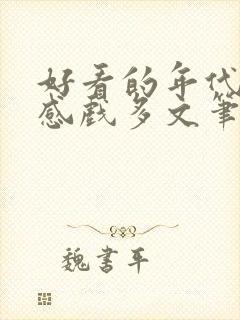 好看的年代
感戏多文笔
魏书平